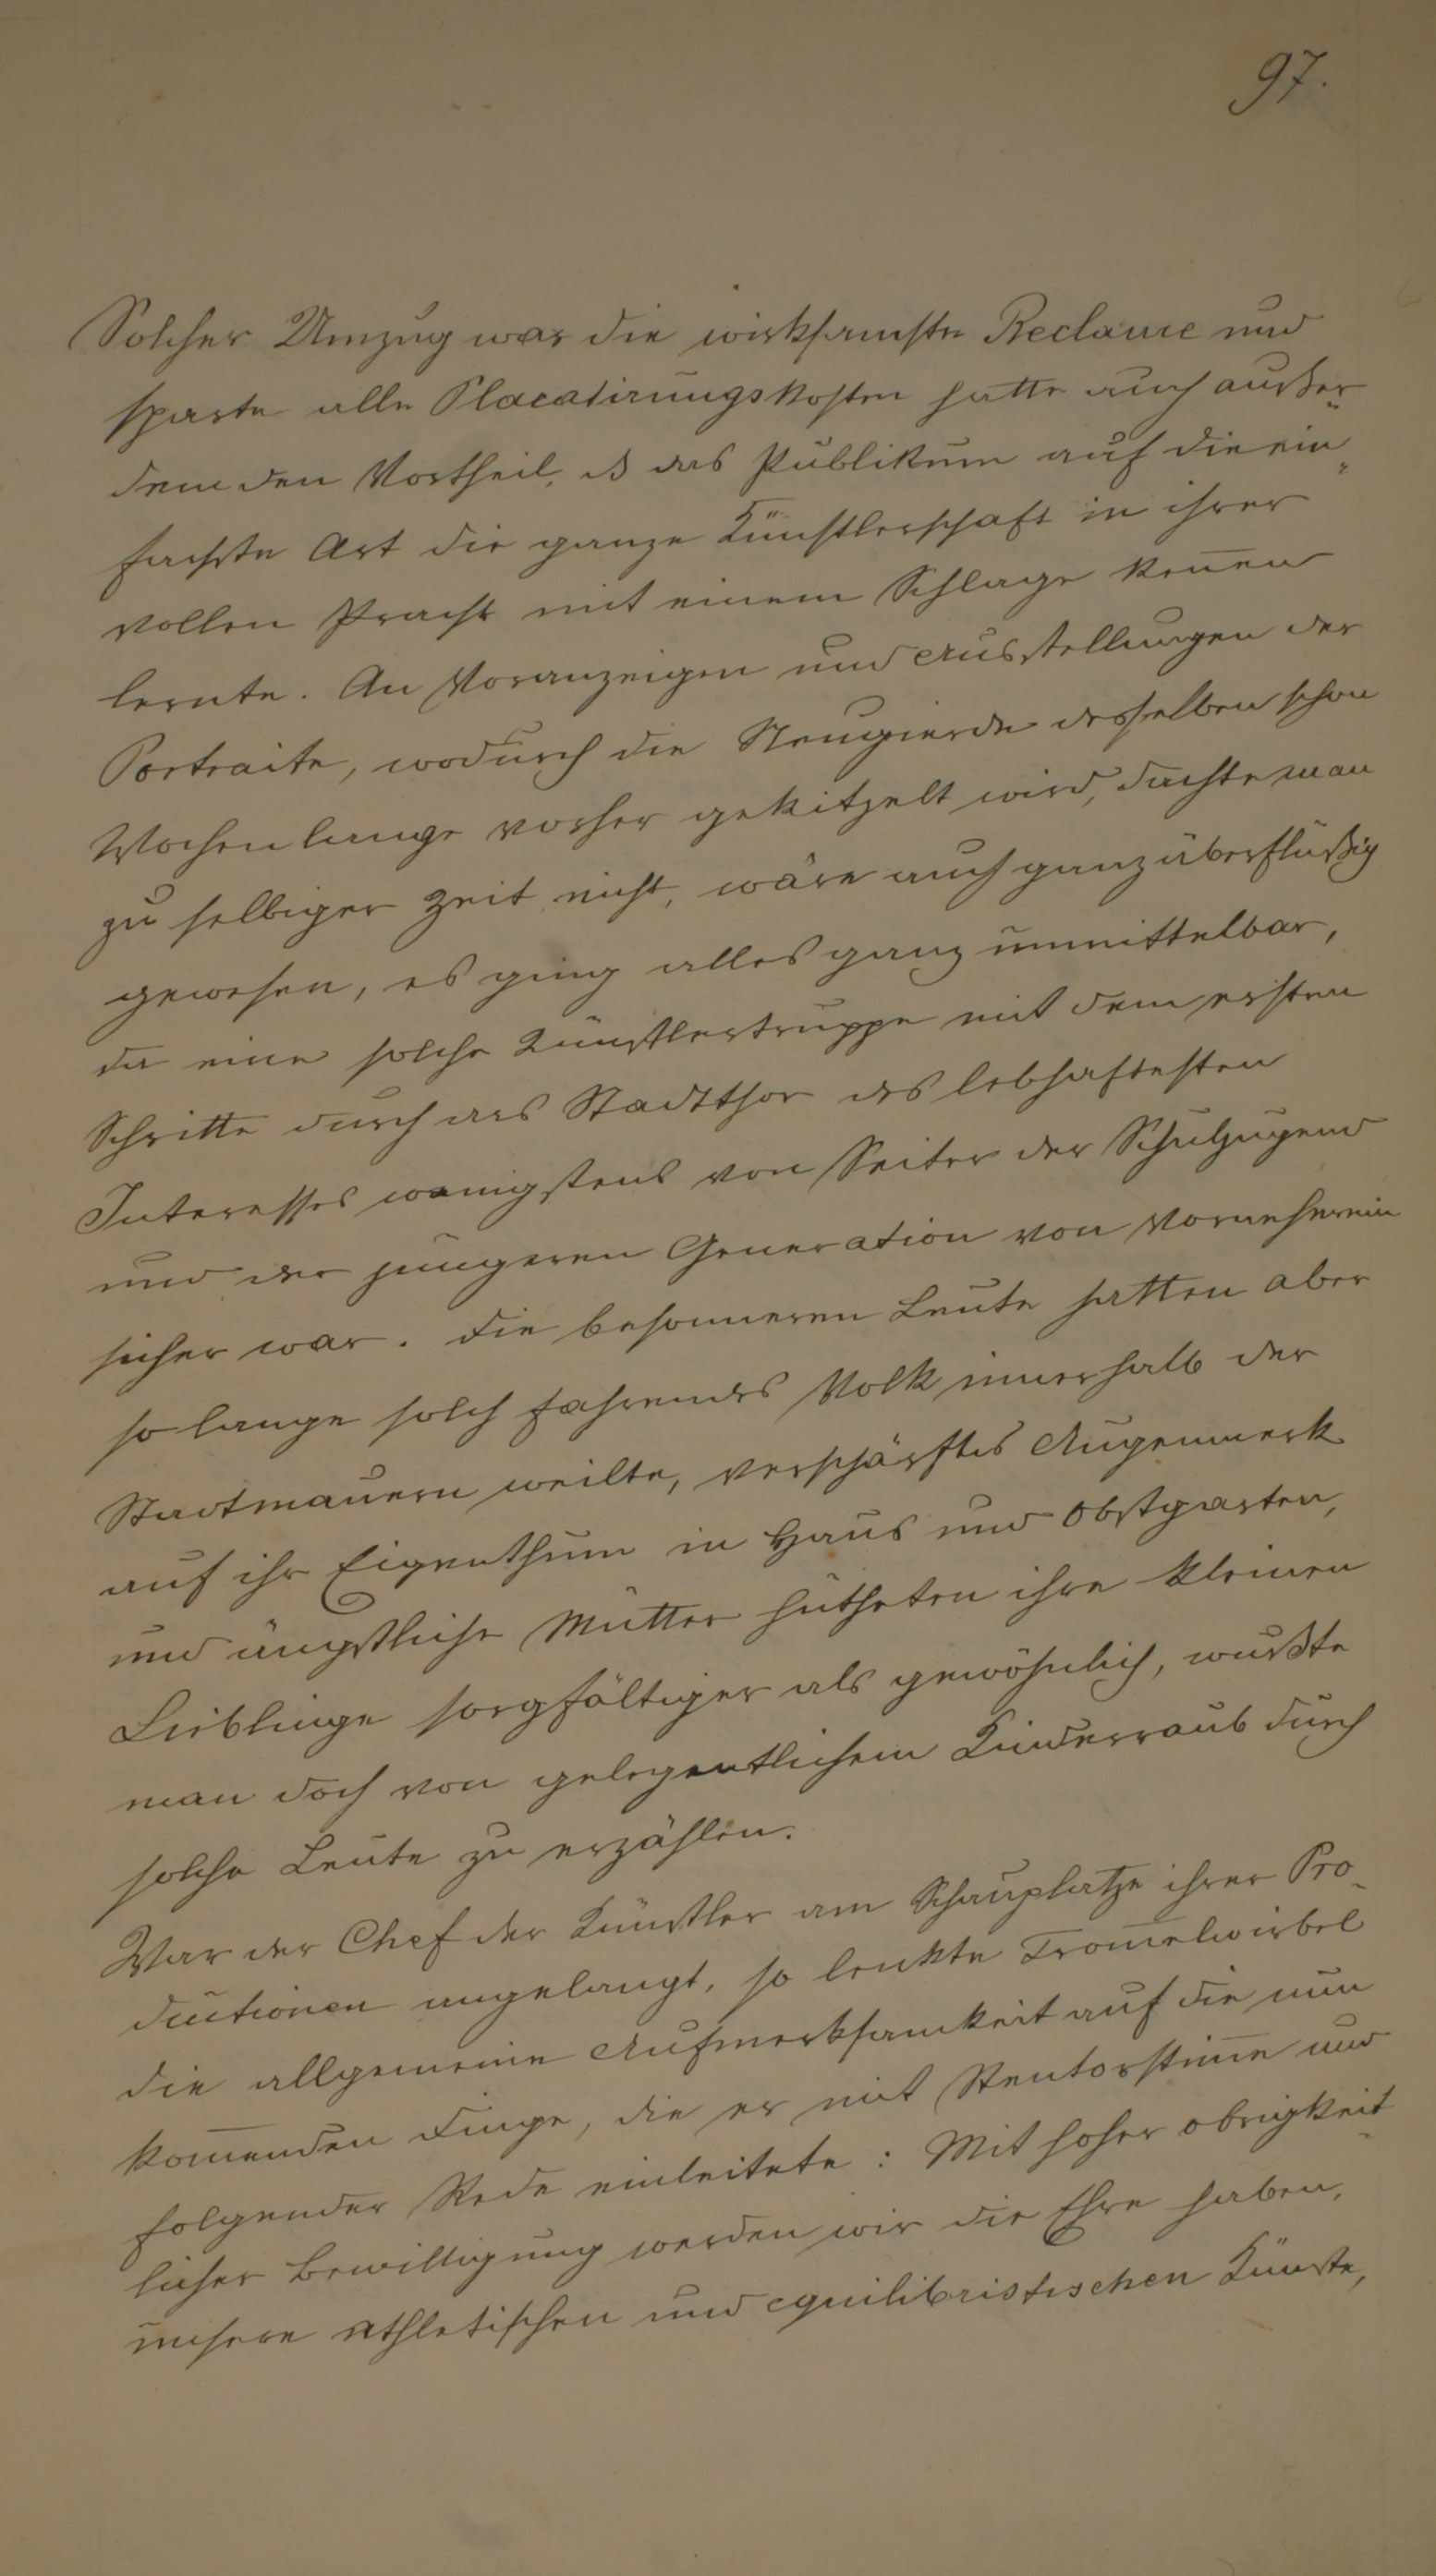 97.
Solcher Umzug war die wirksamste Reclame und
sparte alle Placatirungskosten hatte auch außer-
dem den Vortheil, ds das Publikum auf die ein-
fachste Art die ganze Künstlerschaft in ihrer
vollen Pracht mit einem Schlage keñen
lernte. An Voranzeigen und Ausstellungen der
Portraite, wodurch die Neugierde desselben schon
Wochen lange vorher gekitzelt wird, dachte man
zu selbiger Zeit nicht, wäre auch ganz überflüßig
gewesen, es ging alles ganz unmittelbar,
da eine solche Künstlertruppe mit dem ersten
Schritte durch das Stadtthor des lebhaftesten
Interesses wenigstens von Seiter der Schuljugend
und der jüngeren Generation von Vorneherein
sicher war. Die besonneren Leute hatten aber
so lange solch fahrendes Volk innerhalb der
Stadtmauern weilte, verschärftes Augenmerk
auf ihr Eigenthum in Haus und Obstgarten,
und ängstliche Mütter hütheten ihre kleinen
Lieblinge sorgfältiger als gewöhnlich, wußte
man doch von gelegentlichem Kinderraub durch
solche Leute zu erzählen.
War der Chef der Künstler am Schauplatze ihrer Pro-
ductionen angelangt, so lenkte Trom̄elwirbel
die allgemeine Aufmerksamkeit auf die nun
kom̄enden Dinge, die er mit Stentorstim̄e und
folgender Rede einleitete: Mit hoher obrigkeit-
licher Bewilligung werden wir die Ehre haben,
unsere athletischen und equilibristischen Künste,